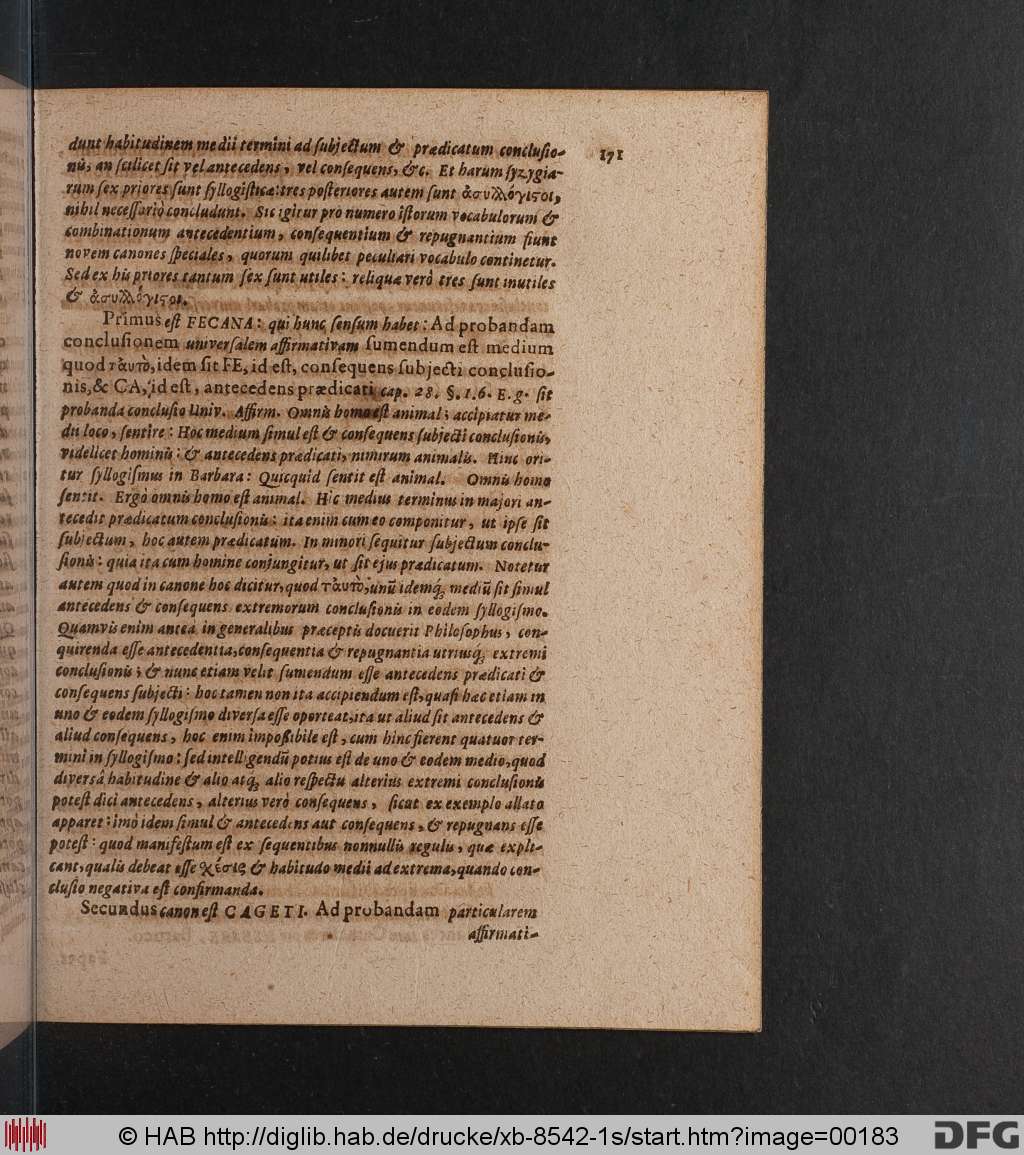 dunt habitudinem medii termini ad ſubjectum & prædicatum concluſio-
nis, an ſcilicet ſit vel antecedens, vel conſequens, &c. Et harum ſyzygia-
rum ſex priores ſunt ſyllogiſticæ: tres poſteriores autem ſunt ἀσυλλόγιστοι,
nihil neceſſariò concludunt. Sic igitur pro numero iſtorum vocabulorum &
combinationum antecedentium, conſequentium & repugnantium fiunt
novem canones ſpeciales, quorum quilibet peculiari vocabulo continetur.
Sed ex his priores tantum ſex ſunt utiles: reliquæ verò tres ſunt inutiles
& ἀσυλλόγιστοι.
Primus eſt FECANA: qui hunc ſenſum habet: Ad probandam
concluſionem univerſalem affirmativam ſumendum eſt medium
quod ταὐτὸ, idem ſit FE, id eſt, conſequens ſubjecti concluſio-
nis, & CA, id eſt, antecedens prædicati cap. 28. §. 1. 6. E. g. ſit
probanda concluſio Univ. Affirm. Omnis homo eſt animal; accipiatur me-
dii loco, ſentire: Hoc medium ſimul eſt & conſequens ſubjecti concluſionis,
videlicet hominis: & antecedens prædicati, nimirum animalis. Hinc ori-
tur ſyllogiſmus in Barbara: Quicquid ſentit eſt animal. Omnis homo
ſentit. Ergò omnis homo eſt animal. Hic medius terminus in majori an-
tecedit prædicatum concluſionis: ita enim cum eo componitur, ut ipſe ſit
ſubjectum, hoc autem prædicatum. In minori ſequitur ſubjectum conclu-
ſionis: quia ita cum homine conjungitur, ut ſit ejus prædicatum. Notetur
autem quod in canone hoc dicitur, quod ταὐτὸ, unũ idemq́; mediũ ſit ſimul
antecedens & conſequens extremorum concluſionis in eodem ſyllogiſmo.
Quamvis enim anteà in generalibus præceptis docuerit Philoſophus, con-
quirenda eſſe antecedentia, conſequentia & repugnantia utriusq́; extremi
concluſionis; & nunc etiam velit ſumendum eſſe antecedens prædicati &
conſequens ſubjecti: hoc tamen non ita accipiendum eſt, quaſi hæc etiam in
uno & eodem ſyllogiſmo diverſa eſſe oporteat, ita ut aliud ſit antecedens &
aliud conſequens, hoc enim impoſſibile eſt, cum hinc fierent quatuor ter-
mini in ſyllogiſmo: ſed intelligendũ potius eſt de uno & eodem medio, quod
diversâ habitudine & alio atq́; alio reſpectu alterius extremi concluſionis
poteſt dici antecedens, alterius verò conſequens, ſicut ex exemplo allato
apparet: imò idem ſimul & antecedens aut conſequens, & repugnans eſſe
poteſt: quod manifeſtum eſt ex ſequentibus nonnullis regulis, quæ expli-
cant, qualis debeat eſſe χέσις & habitudo medii ad extrema, quando con-
cluſio negativa eſt confirmanda.
Secundus canon eſt CAGETI. Ad probandam particularem
affirmati-
171
© HAB http://diglib.hab.de/drucke/xb-8542-1s/start.htm?image=00183
DFG